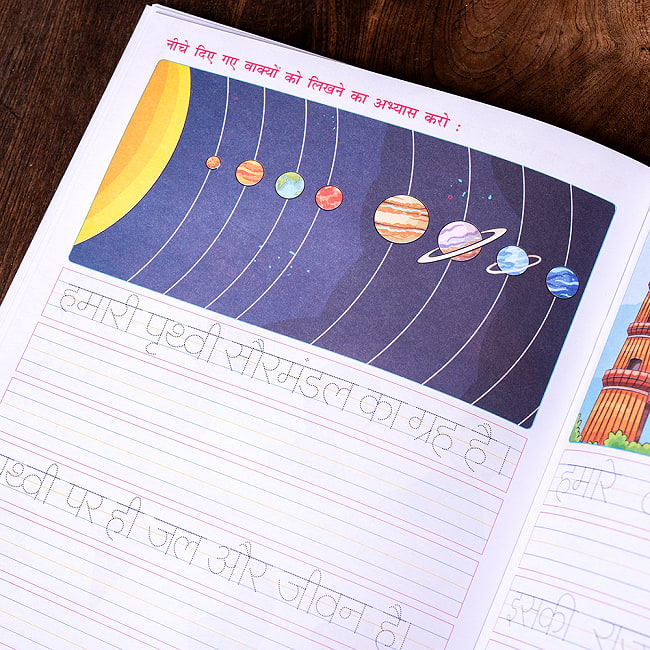 नीचे दिए गए वाक्यों को लिखने का अभ्यास करो :
हमारी पृथ्वी सौरमंडल का ग्रह है।
पृथ्वी पर ही जल और जीवन है।
हमारे
इसकी